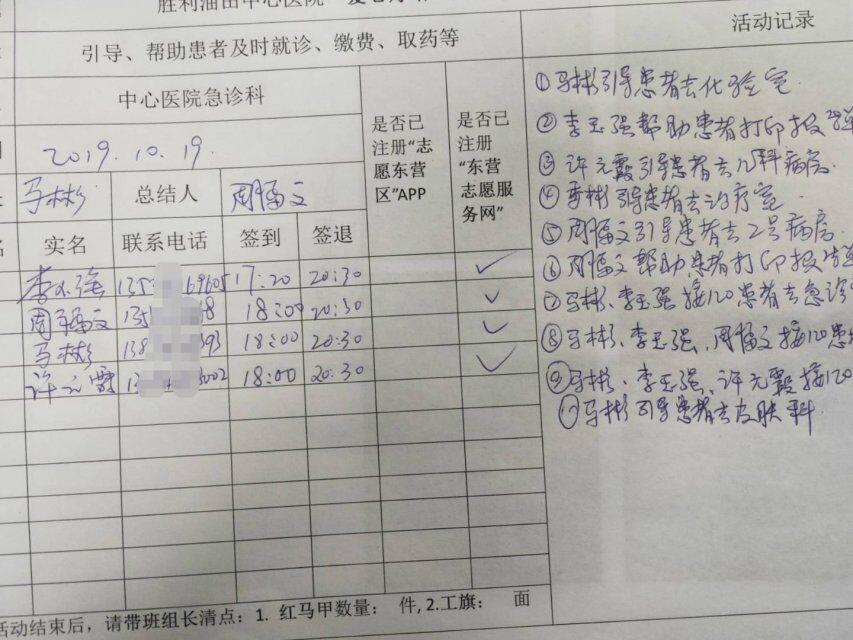 胜利油田中心医院
活动记录
引导、帮助患者及时就诊、缴费、取药等
中心医院急诊科
是否已注册“志愿东营区”APP
是否已注册“东营志愿服务网”
2019.10.19.
马彬 总结人 周福文
实名 联系电话 签到 签退
李玉强 135 69605 17:20 20:30 ✓
周福文 135 8 18:00 20:30 ✓
马彬 138 393 18:00 20:30 ✓
许元霞 1 3002 18:00 20:30 ✓
①马彬引导患者去化验室.
②李玉强帮助患者打印报告单
③许元霞引导患者去儿科病房.
④马彬引导患者去治疗室.
⑤周福文引导患者去2号病房.
⑥周福文帮助患者打印报告单
⑦马彬、李玉强接120患者去急诊
⑧马彬、李玉强、周福文接120患
⑨马彬、李玉强、许元霞接120
⑩马彬引导患者去皮肤科.
活动结束后，请带班组长清点：1. 红马甲数量： 件, 2.工旗： 面